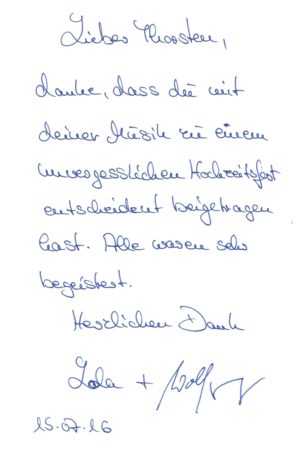 Lieber Thorsten,
danke, dass du mit
deiner Musik zu einem
unvergesslichen Hochzeitsfest
entscheident beigetragen
hast. Alle waren sehr
begeistert.
Herzlichen Dank
Lola + Wolfgang
15.07.16